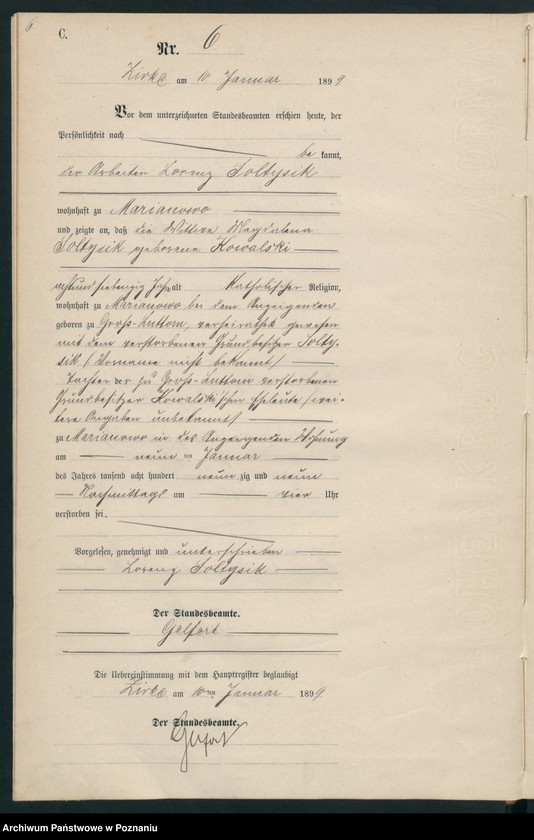 6
C.
Nr. 6
Zirke am 10 Januar 1899
Vor dem unterzeichneten Standesbeamten erschien heute, der
Persönlichkeit nach
be kannt,
der Arbeiter Lorenz Soltysik
wohnhaft zu Marianowo
und zeigte an, daß die Wittwe Magdalena
Soltysik geborene Kowalski
achtundsiebenzig Jahr alt Katholischer Religion,
wohnhaft zu Marianowo bei dem Anzeigenden
geboren zu Gross-Luttom, verheirathet gewesen
mit dem verstorbenen Grundbesitzer Solty-
sik (Vorname nicht bekannt)
Tochter der zu Gross-Luttom verstorbenen
Grundbesitzer Kowalski'schen Eheleute (wei-
tere Angaben unbekannt)
zu Marianowo in des Anzeigenden Wohnung
am neun ten Januar
des Jahres tausend acht hundert neun zig und neun
Nachmittags um vier Uhr
verstorben sei.
Vorgelesen, genehmigt und unterschrieben
Lorenz Soltysik
Der Standesbeamte.
Gelfort
Die Uebereinstimmung mit dem Hauptregister beglaubigt
Zirke am 10ten Januar 1899
Der Standesbeamte.
Gelfort
Archiwum Państwowe w Poznaniu